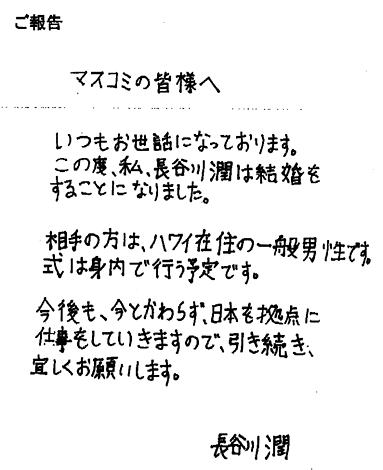 ご報告
マスコミの皆様へ
いつもお世話になっております。
この度、私、長谷川潤は結婚を
することになりました。
相手の方は、ハワイ在住の一般男性です。
式は身内で行う予定です。
今後も、今とかわらず、日本を拠点に
仕事をしていきますので、引き続き、
宜しくお願いします。
長谷川潤